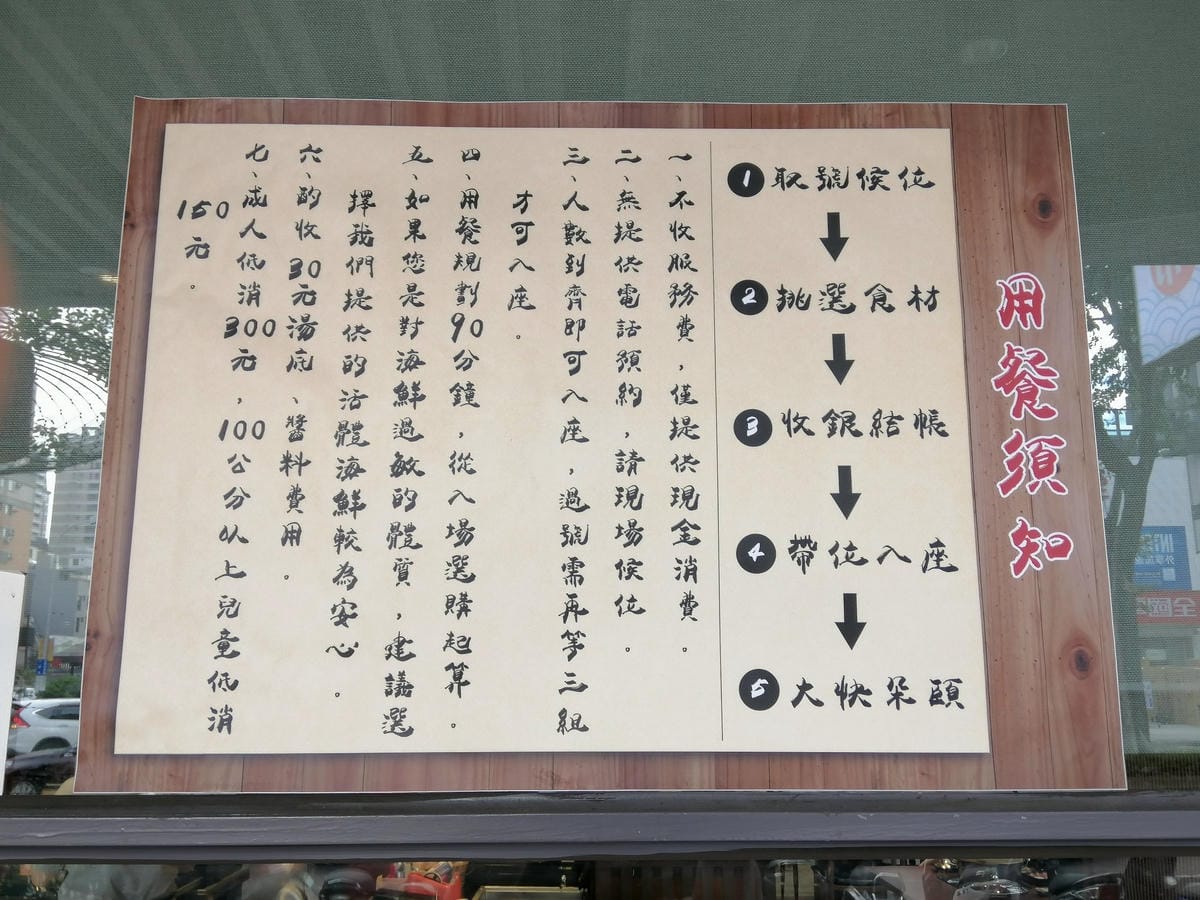 用餐須知
1 取號候位
2 挑選食材
3 收銀結帳
4 帶位入座
5 大快朵頤
一、不收服務費，僅提供現金消費。
二、無提供電話預約，請現場候位。
三、人數到齊即可入座，過號需再等三組
才可入座。
四、用餐規劃90分鐘，從入場選購起算。
五、如果您是對海鮮過敏的體質，建議選
擇我們提供的活體海鮮較為安心。
六、酌收30元湯底、醬料費用。
七、成人低消300元，100公分以上兒童低消
150元。